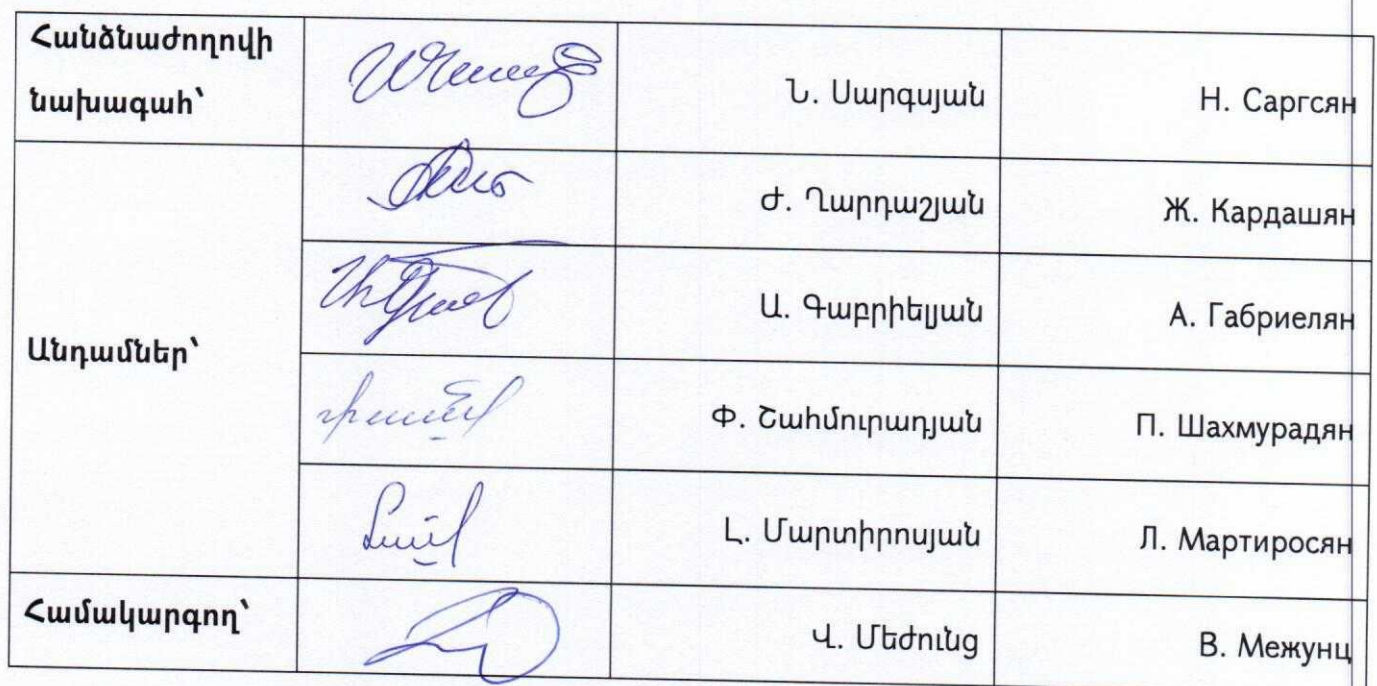 Հանձնաժողովի
նախագահ՝
Ն. Սարգսյան
Н. Саргсян
Անդամներ՝
Ժ. Ղարդաշյան
Ж. Кардашян
Ա. Գաբրիելյան
А. Габриелян
Փ. Շահմուրադյան
П. Шахмурадян
Լ. Մարտիրոսյան
Л. Мартиросян
Համակարգող՝
Վ. Մեժունց
В. Межунц